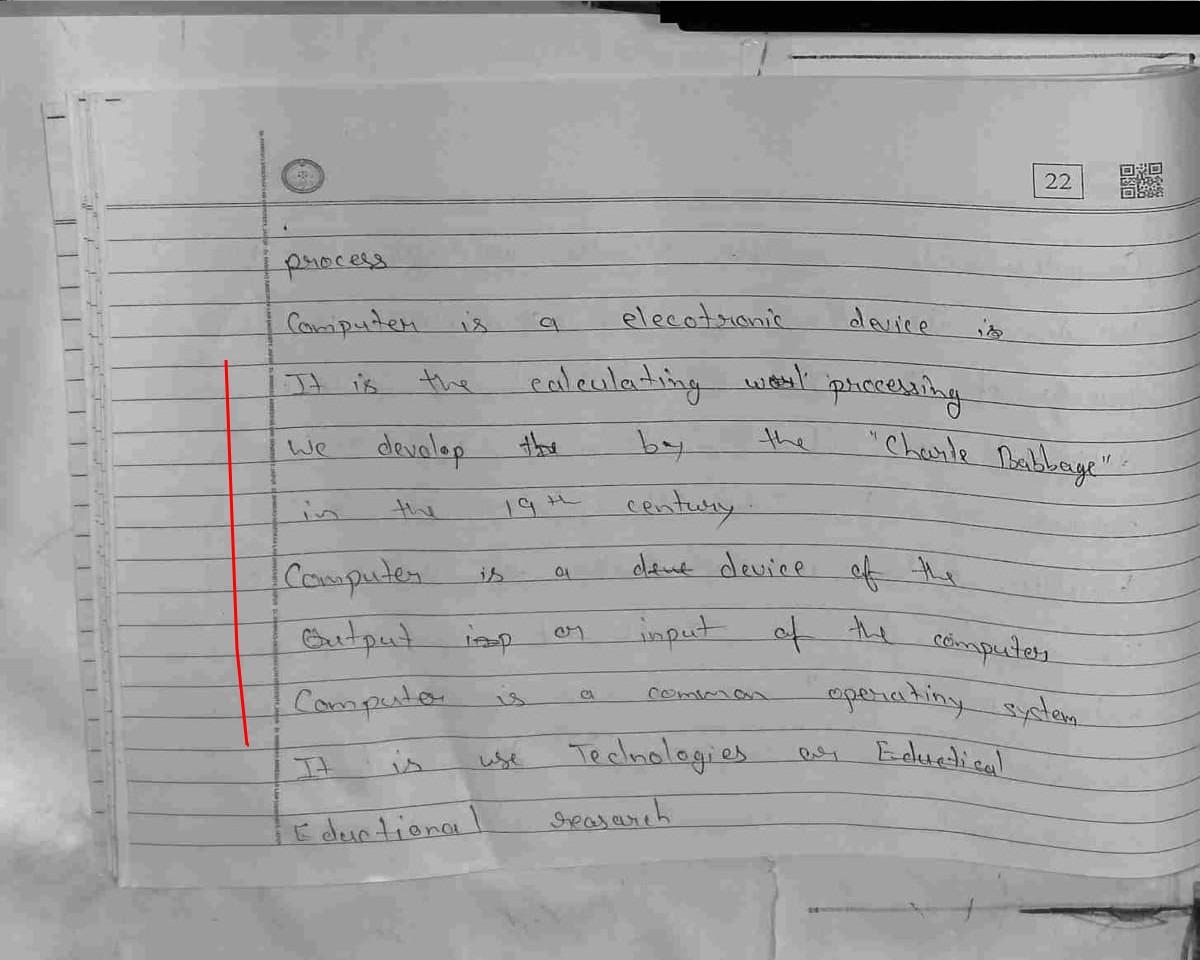 22
process
Computer is a elecotronic device is
It is the calculating work processing
We devolop the by the "Charle Babbage"
in the 19th century.
Computer is a deve device of the
Output inp or input of the computer
Computer is a common operating system
It is use Technologies or Eductical
Eductional reasarch